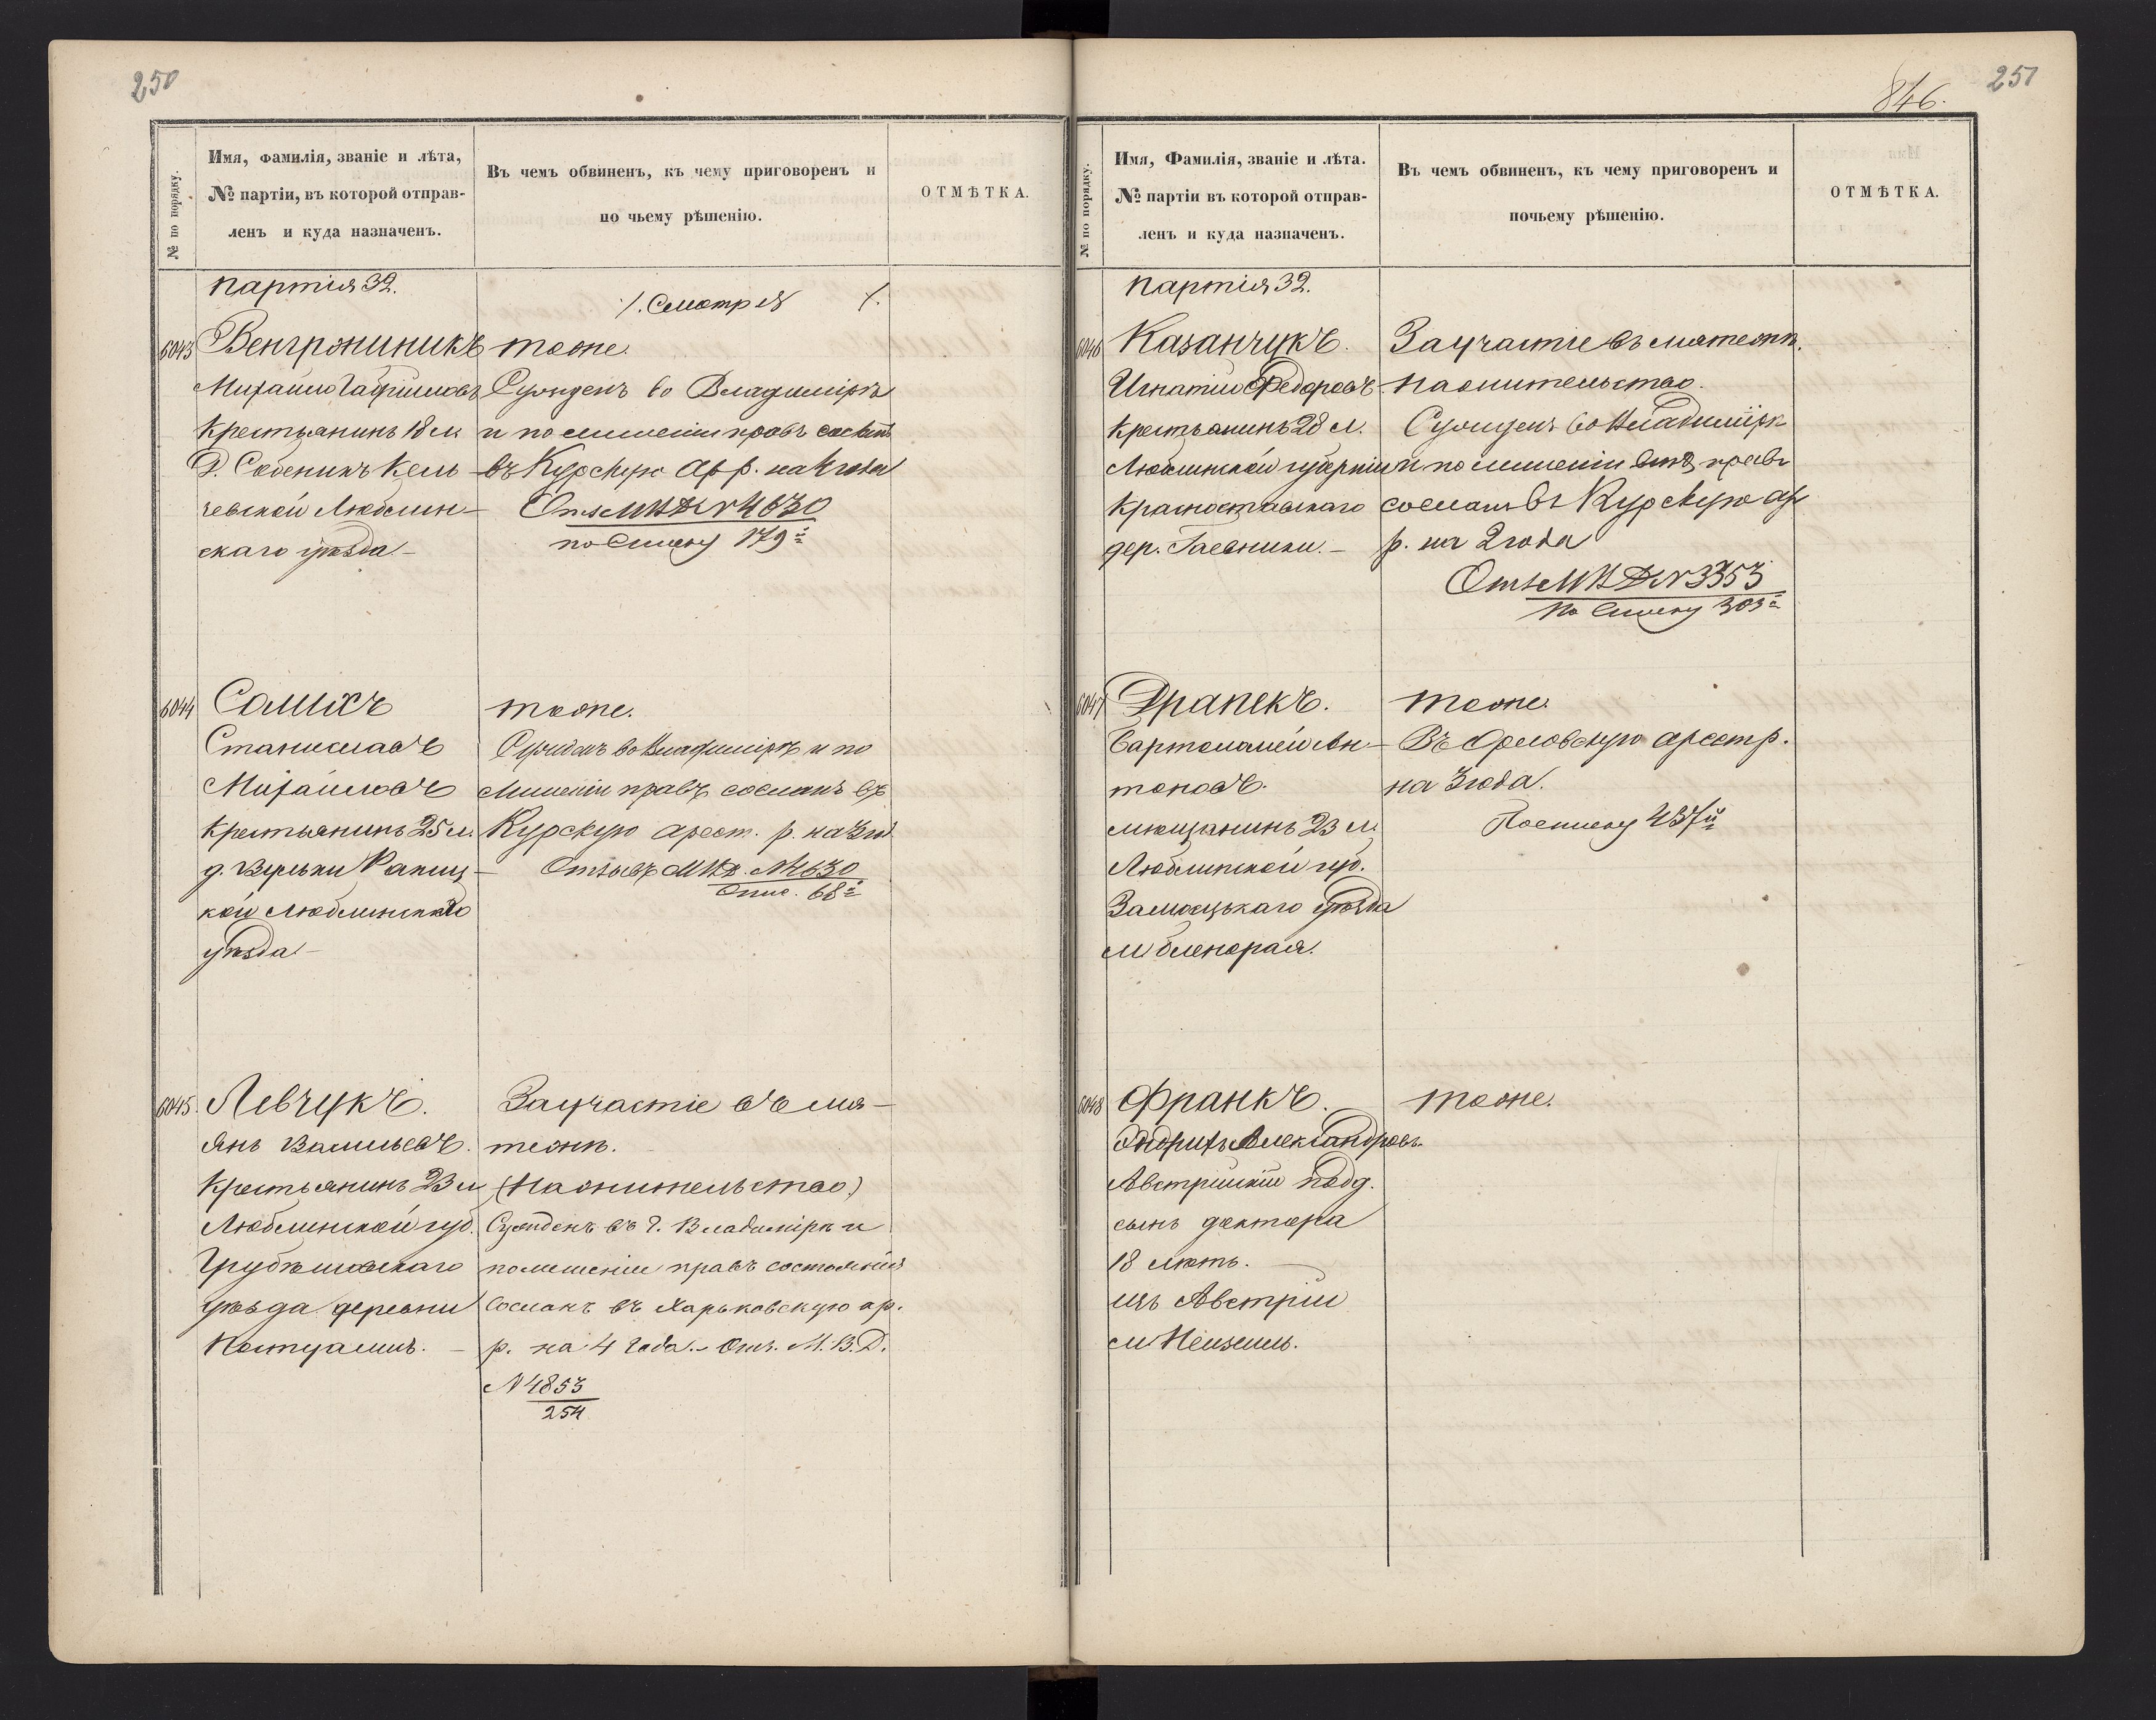 250
№ по порядку.
Имя, фамилія, званіе и лѣта,
№ партіи, въ которой отправ-
ленъ и куда назначенъ.
Въ чемъ обвиненъ, къ чему приговоренъ и
по чьему рѣшенію.
ОТМѢТКА.
партія 32.
6043
Венгржиникъ
Михаилъ
Крестьянинъ 18 л.
скаго уѣзда
тоже.
Сужденъ во Владимірѣ
и по лишеніи правъ
въ Курскую ар р. на 4 года
Отз МВД N 4630
по списку 179
6044
Самихъ
Станиславъ
Михайловъ
Крестьянинъ 25 л.
кой Люблинскаго
уѣзда
тоже.
Сужденъ во Владимірѣ и по
лишеніи правъ сосланъ въ
Курскую арест. р. на 3 год.
Отзывъ МВД. N 4630
68
6045.
Левчукъ.
Янъ Васильевъ.
Крестьянинъ 23 л
Люблинской губ.
Грубешовскаго
уѣзда деревни
За участіе въ мя-
тежѣ.
(Наонительство)
Сужденъ въ г. Владимірѣ и
по лишеніи правъ состоянія
сосланъ въ Харьковскую ар.
р. на 4 года. – Отз. М.В.Д.
N 4853
254
251
846.
№ по порядку.
Имя, Фамилія, званіе и лѣта.
№ партіи въ которой отправ-
ленъ и куда назначенъ.
Въ чемъ обвиненъ, къ чему приговоренъ и
почьему рѣшенію.
ОТМѢТКА.
партія 32.
6046
Казанчукъ.
Игнатій Федоровъ
Крестьянинъ 28 л.
Люблинской губерніи
Красноставскаго
дер.
За участіе въ мятежѣ.
Наонительство.
Сужденъ во Владимірѣ
и по лишеніи всѣхъ правъ
сосланъ въ Курскую ар
р. на 2 года
Отз МВД N 3353
по списку 303
6047
Драпекъ.
Бартоломей Ан-
тоновъ.
мѣщанинъ 23 л.
Люблинской губ.
Замосцькаго уѣзда
тоже.
Въ Орловскую арест р.
на 3 года.
По списку 437й
6048
Франкъ.
Александровъ.
Австрійскій подд.
сынъ доктора
18 лѣтъ.
изъ Австріи
тоже.